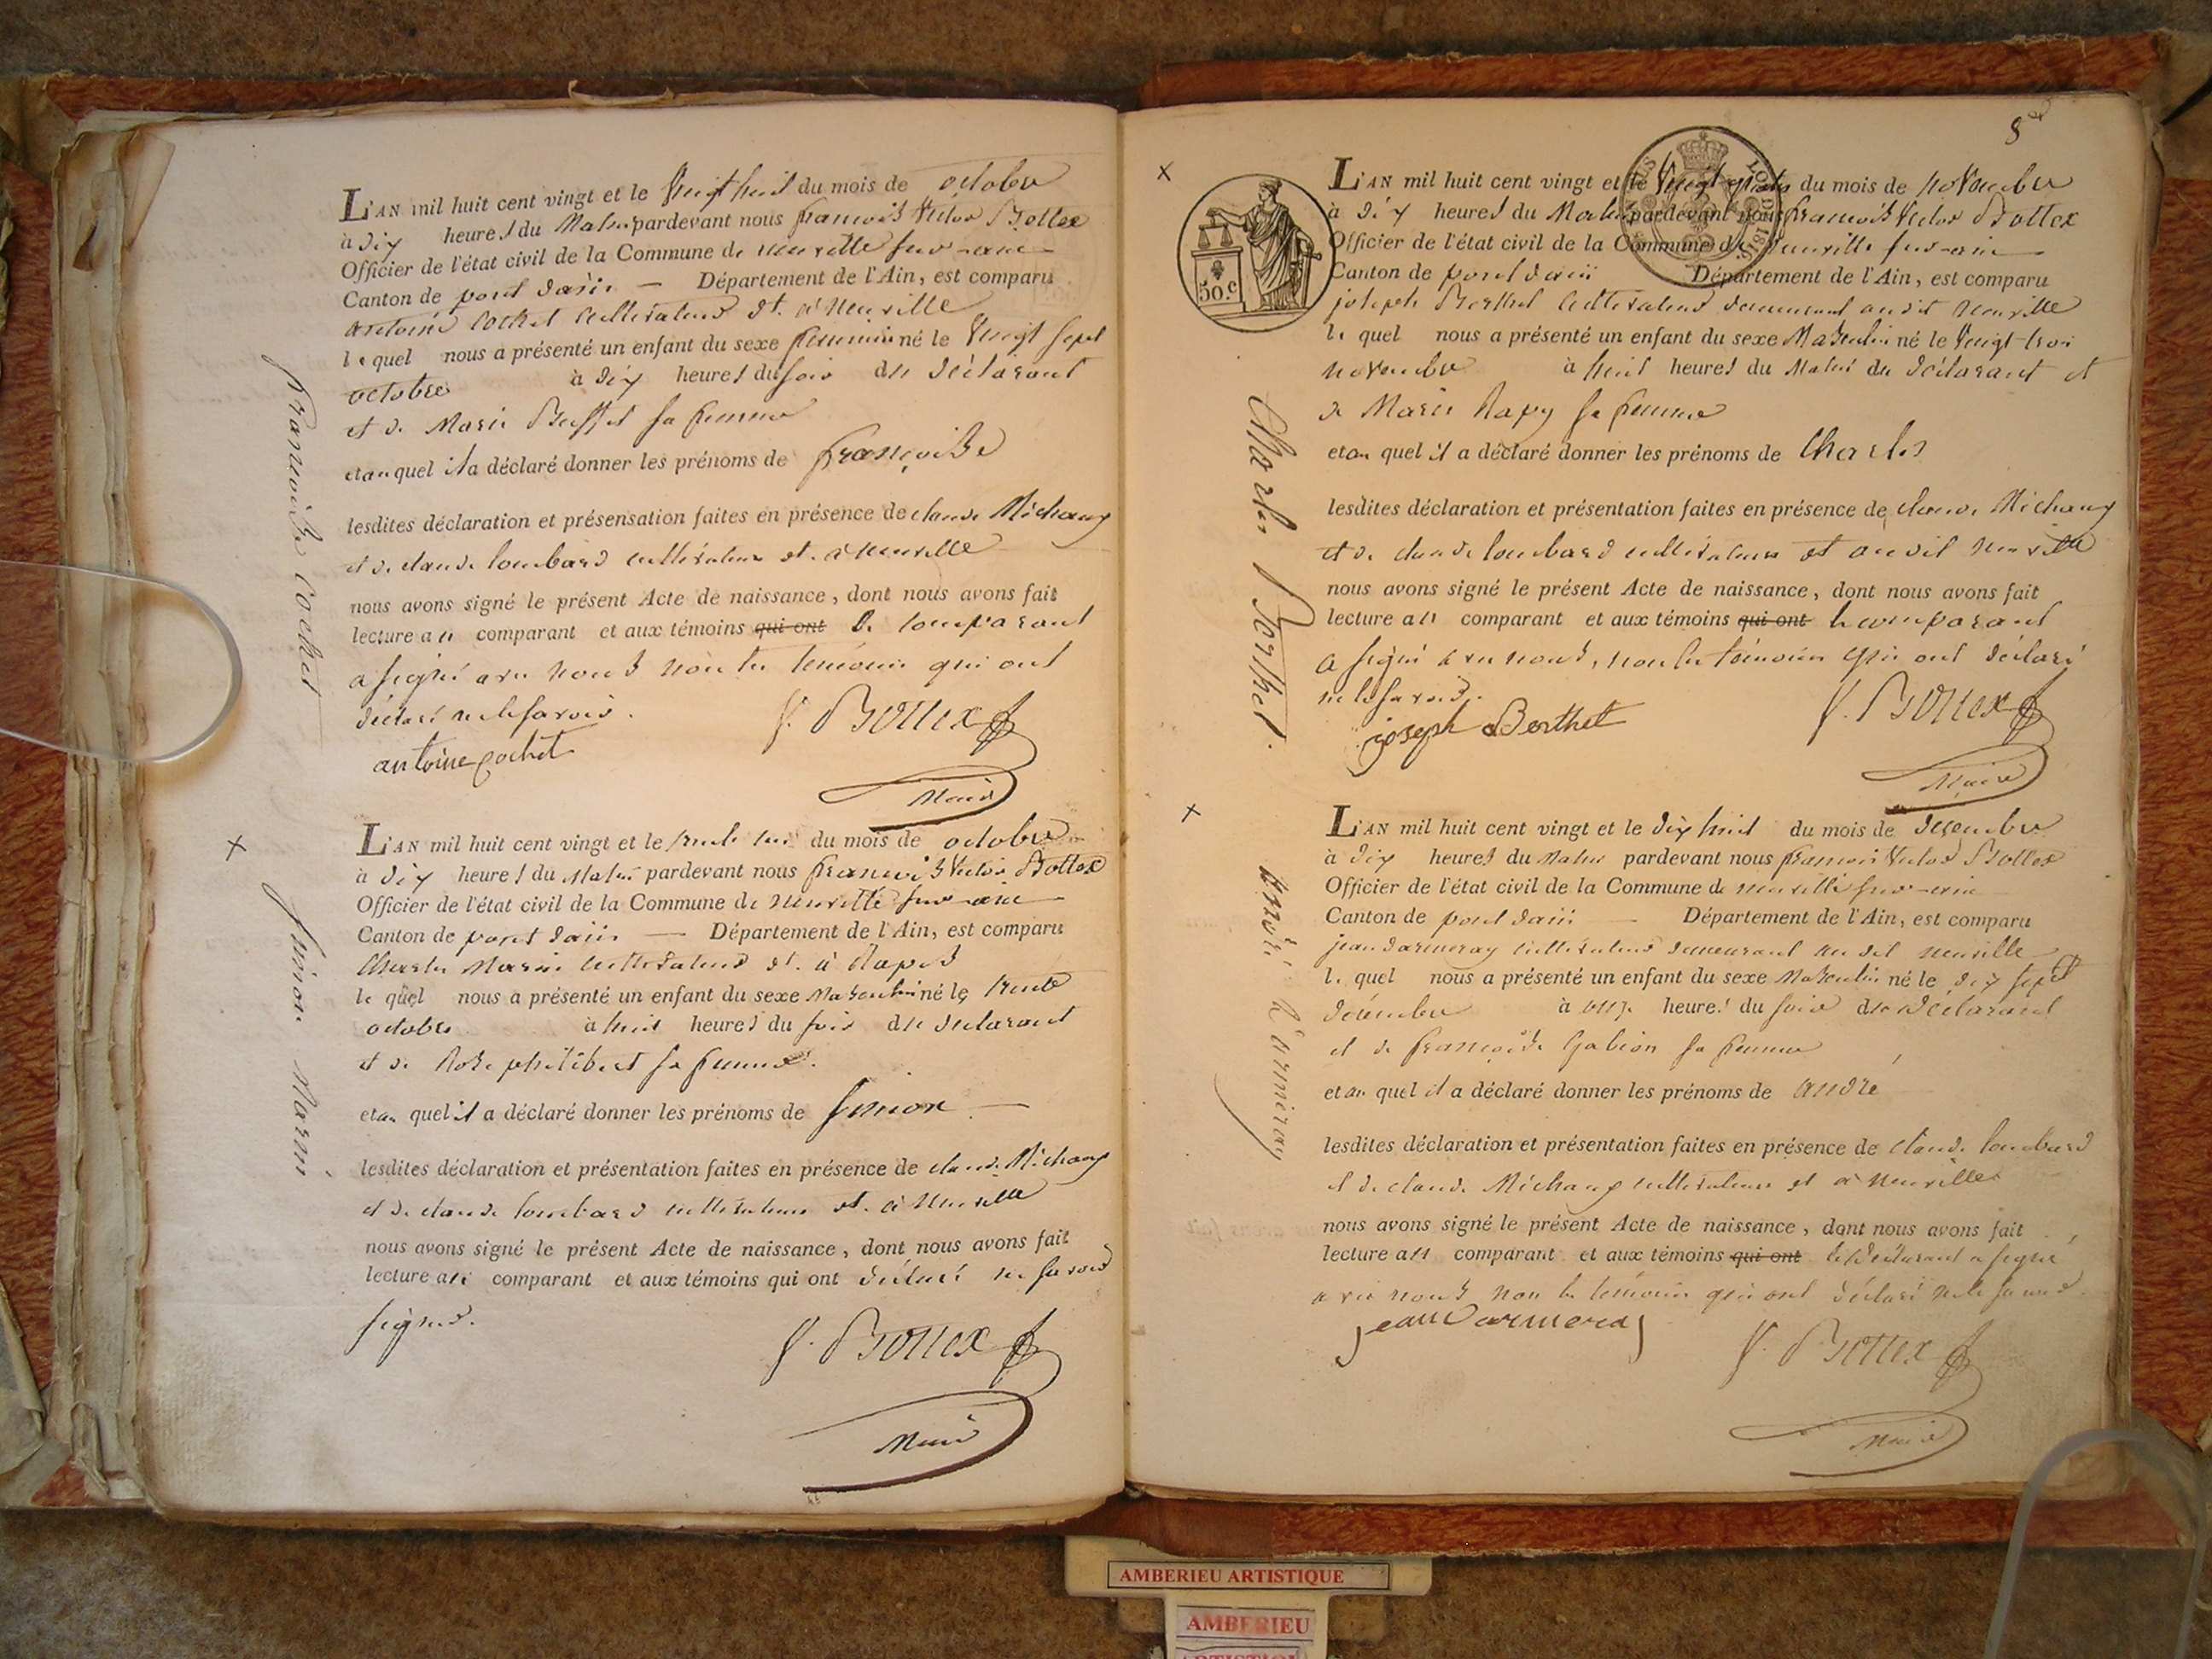 L'AN mil huit cent vingt et le vingt huit du mois de octobre
à dix heures du Matin pardevant nous francois Victor Bottex
Officier de l'état civil de la Commune de neuville sur-ain
Canton de pont dain — Département de l'Ain, est comparu
antoine cochet cultivateur dt. à Neuville
le quel nous a présenté un enfant du sexe feminin né le vingt sept
octobre à dix heures du soir du déclarant
et de Marie Buffet sa femme
et au quel il a déclaré donner les prénoms de françoise
lesdites déclaration et présensation faites en présence de claude Michaux
et de claude lombard cultivateurs dt. à neuville
nous avons signé le présent Acte de naissance, dont nous avons fait
lecture au comparant et aux témoins qui ont le comparant
a signé avec nous non les temoins qui ont
déclaré ne le savoir.
antoine cochet
V. Bottex
Maire
francoise Cochet
L'AN mil huit cent vingt et le trente un du mois de octobre
à dix heures du Matin pardevant nous francois Victor Bottex
Officier de l'état civil de la Commune de neuville sur-ain
Canton de pont dain — Département de l'Ain, est comparu
Charles Marin cultivateur dt. à
le quel nous a présenté un enfant du sexe Masculin né le trente
octobre à huit heures du soir du declarant
et de Rose philibert sa femme.
et au quel il a déclaré donner les prénoms de simon —
lesdites déclaration et présentation faites en présence de claude Michaux
et de claude lombard cultivateurs dt. à Neuville
nous avons signé le présent Acte de naissance, dont nous avons fait
lecture au comparant et aux témoins qui ont déclaré ne savoir
signer.
V. Bottex
Maire
simon Marin
8
50.c
L'AN mil huit cent vingt et le vingt du mois de novembre
à dix heures du Matin pardevant nous francois Victor Bottex
Officier de l'état civil de la Commune de Neuville sur-ain
Canton de pont dain Département de l'Ain, est comparu
joseph Berthet cultivateur demeurant audit neuville
le quel nous a présenté un enfant du sexe Masculin né le vingt-trois
novembre à huit heures du Matin du déclarant et
de Marie Ravy sa femme
et au quel il a déclaré donner les prénoms de Charles
lesdites déclaration et présentation faites en présence de claude Michaux
et de claude lombard cultivateurs dt audit neuville
nous avons signé le présent Acte de naissance, dont nous avons fait
lecture au comparant et aux témoins qui ont le comparant
a signé avec nous, non les témoins qui ont déclaré
ne le savoir.
joseph Berthet
V. Bottex
Maire
Charles Berthet.
L'AN mil huit cent vingt et le dix huit du mois de decembre
à dix heures du Matin pardevant nous francois Victor Bottex
Officier de l'état civil de la Commune de neuville sur-ain
Canton de pont dain — Département de l'Ain, est comparu
jean darmeray cultivateur demeurant au dit neuville
le quel nous a présenté un enfant du sexe Masculin né le dix sept
décembre à onze heures du soir du déclarant
et de françoise Gabion sa femme
et au quel il a déclaré donner les prénoms de andré
lesdites déclaration et présentation faites en présence de claude lombard
et de claude Michaux cultivateurs dt à neuville
nous avons signé le présent Acte de naissance, dont nous avons fait
lecture au comparant et aux témoins qui ont le déclarant a signé
avec nous non les témoins qui ont déclaré ne le savoir.
jean Darmeray
V. Bottex
Maire
André Darmeray
AMBERIEU ARTISTIQUE
AMBERIEU
ARTISTIQUE